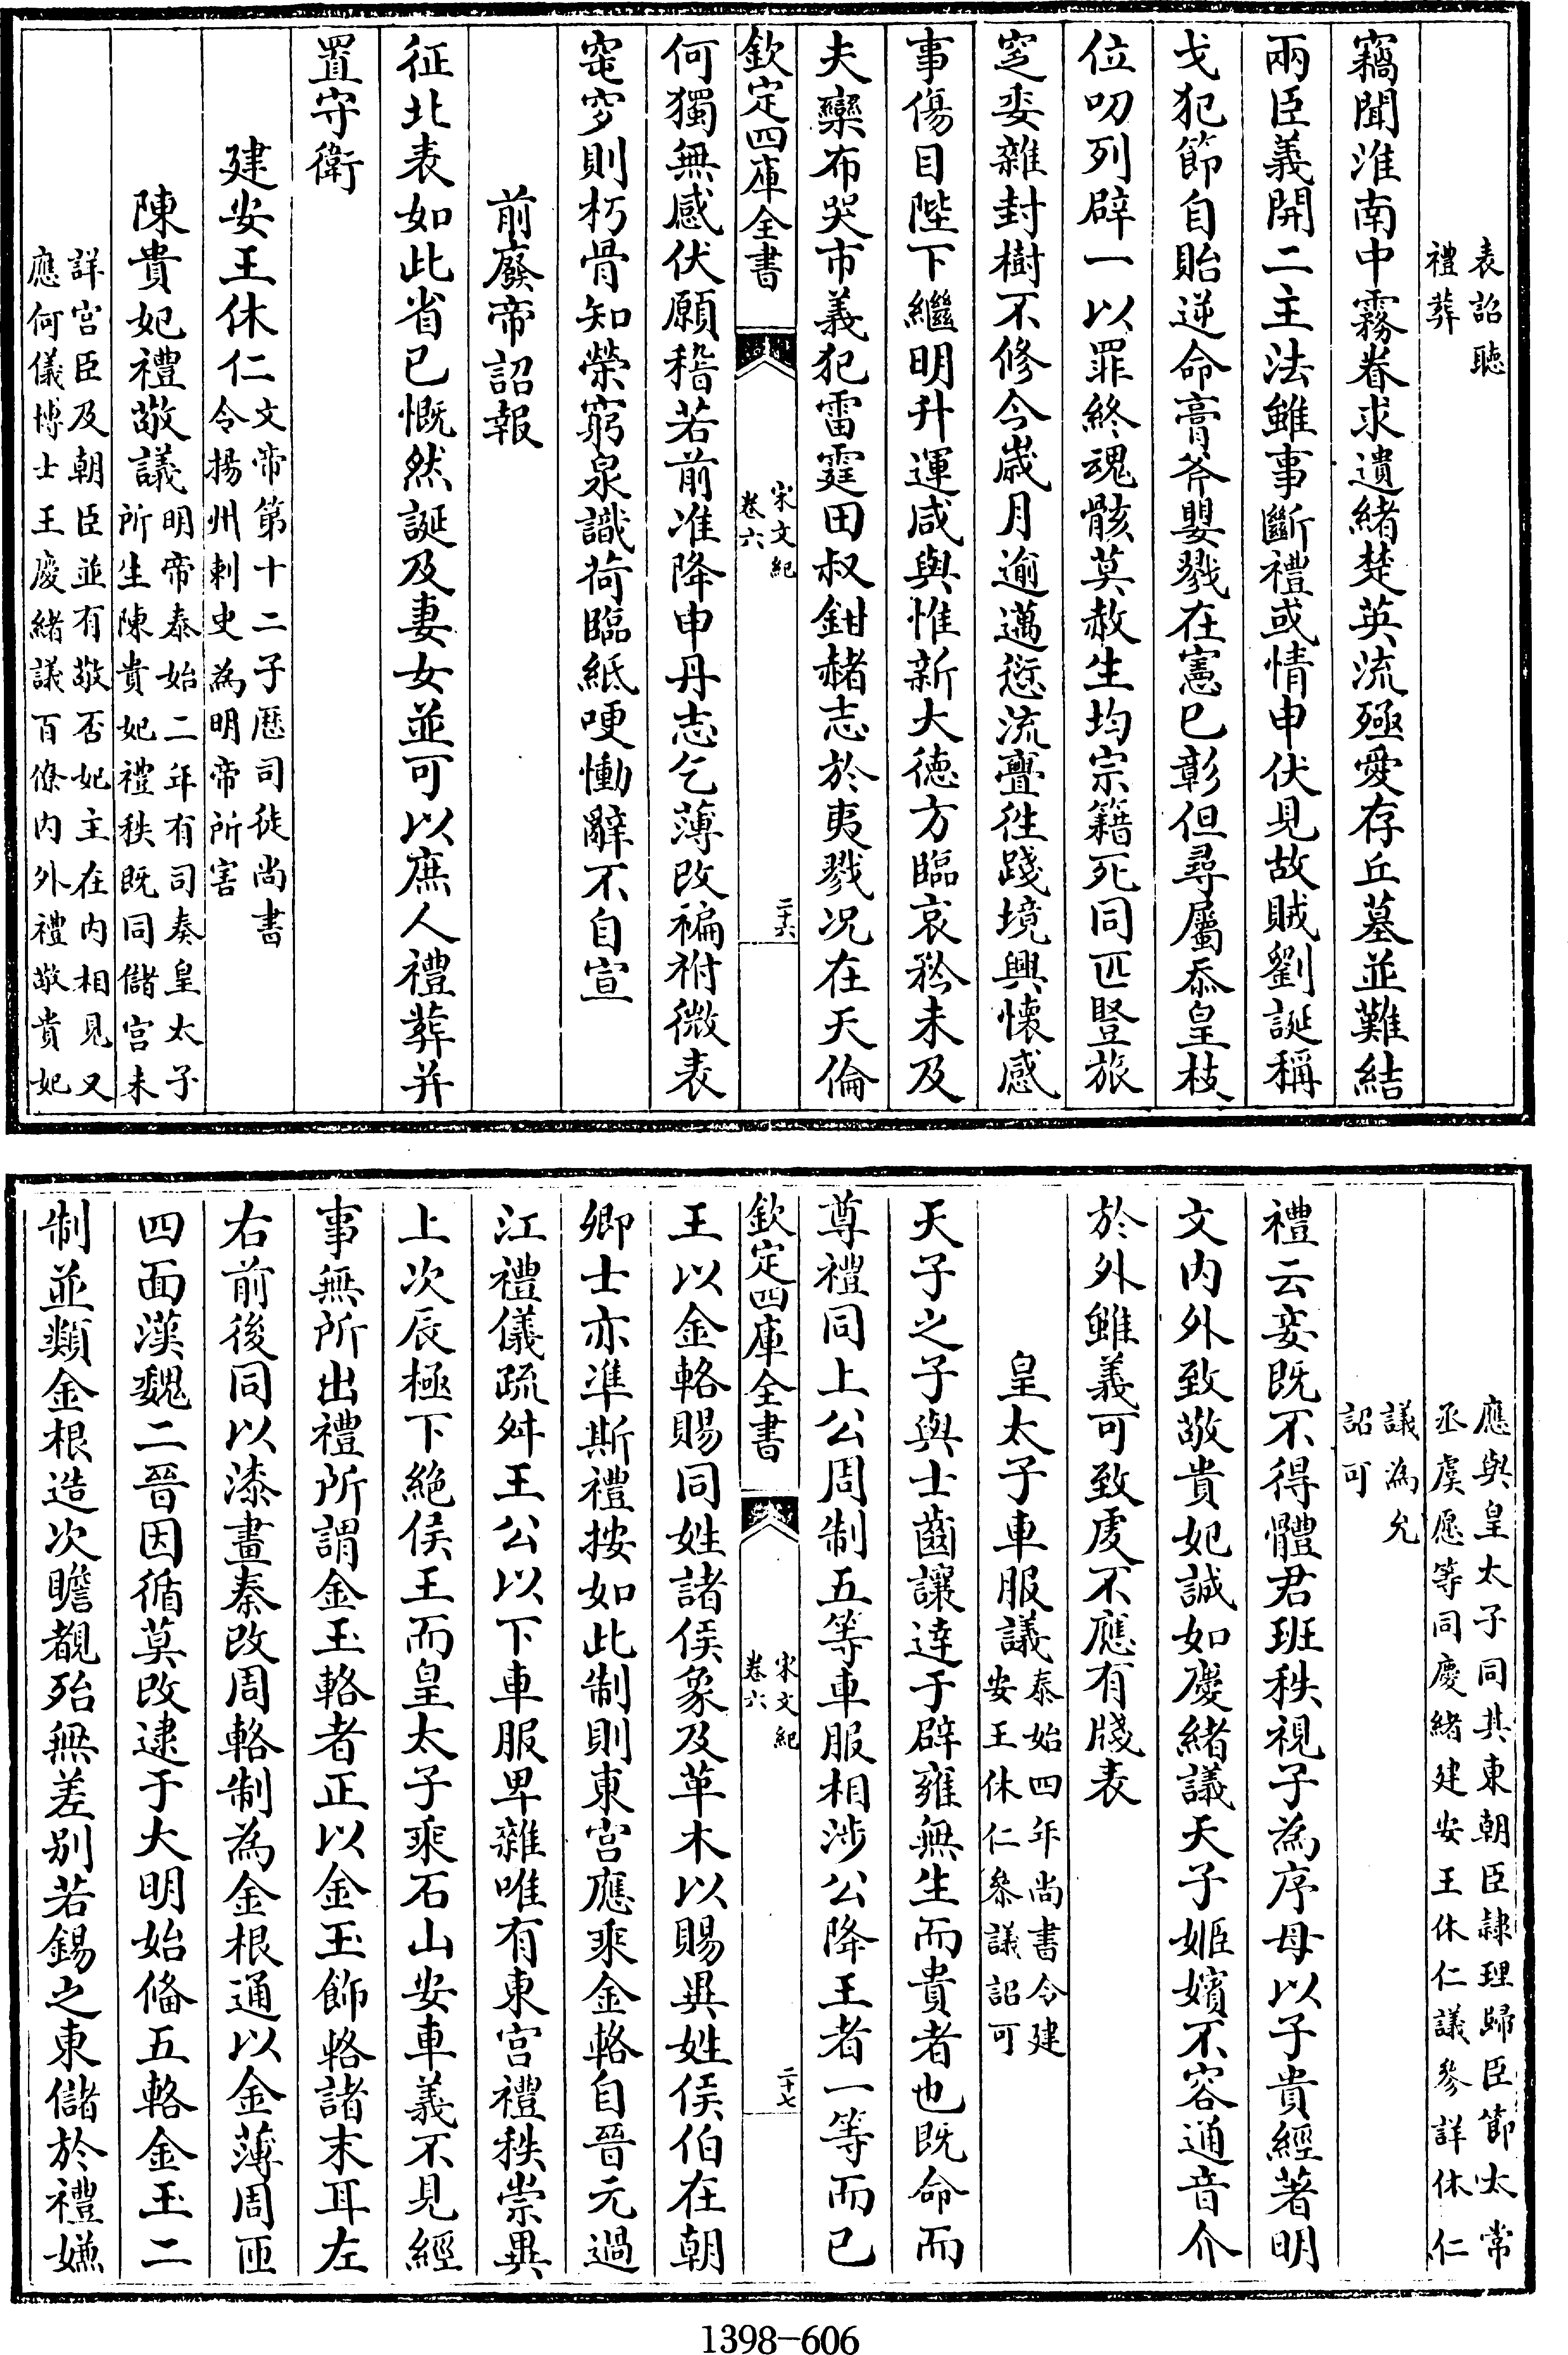 表詔聽
禮葬
竊聞淮南中霧眷求遺緒楚英流殛愛存丘墓並難結
兩臣義開二主法雖事斷禮或情申伏見故賊劉誕稱
戈犯節自貽逆命膏斧嬰戮在憲已彰但尋屬忝皇枝
位叨列辟一以罪終魂骸莫赦生均宗籍死同匹豎旅
窆委雜封樹不修今歲月逾邁愆流舋往踐境興懷感
事傷目陛下繼明升運咸與惟新大德方臨哀矜未及
夫欒布哭市義犯雷霆田叔鉗赭志於夷戮况在天倫
欽定四庫全書
宋文紀
卷六
二十六
何獨無感伏願稽若前准降申丹志乞薄改褊祔微表
窀穸則朽骨知榮窮泉識荷臨紙哽慟辭不自宣
前廢帝詔報
征北表如此省已慨然誕及妻女並可以庶人禮葬并
置守衛
建安王休仁
文帝第十二子歷司徒尚書
令揚州刺史為明帝所害
陳貴妃禮敬議
明帝泰始二年有司奏皇太子
所生陳貴妃禮秩既同儲宫未
詳宫臣及朝臣並有敬否妃主在内相見又
應何儀博士王慶緒議百僚内外禮敬貴妃
應與皇太子同其東朝臣隸理歸臣節太常
丞虞愿等同慶緒建安王休仁議參詳休仁
議為允
詔可
禮云妾既不得體君班秩視子為序母以子貴經著明
文内外致敬貴妃誠如慶緒議天子姬嬪不容通音介
於外雖義可致䖍不應有牋表
皇太子車服議
泰始四年尚書令建
安王休仁叅議詔可
天子之子與士齒讓逹于辟雍無生而貴者也既命而
尊禮同上公周制五等車服相涉公降王者一等而已
欽定四庫全書
宋文紀
卷六
二十七
王以金輅賜同姓諸侯象及革木以賜異姓侯伯在朝
卿士亦凖斯禮按如此制則東宫應乘金輅自晉元過
江禮儀疏舛王公以下車服卑雜唯有東宫禮秩崇異
上次辰極下絶侯王而皇太子乘石山安車義不見經
事無所出禮所謂金玉輅者正以金玉飾輅諸末耳左
右前後同以漆畫秦改周輅制為金根通以金薄周匝
四面漢魏二晉因循莫改逮于大明始備五輅金玉二
制並類金根造次瞻覩殆無差别若錫之東儲於禮嫌
1398-606